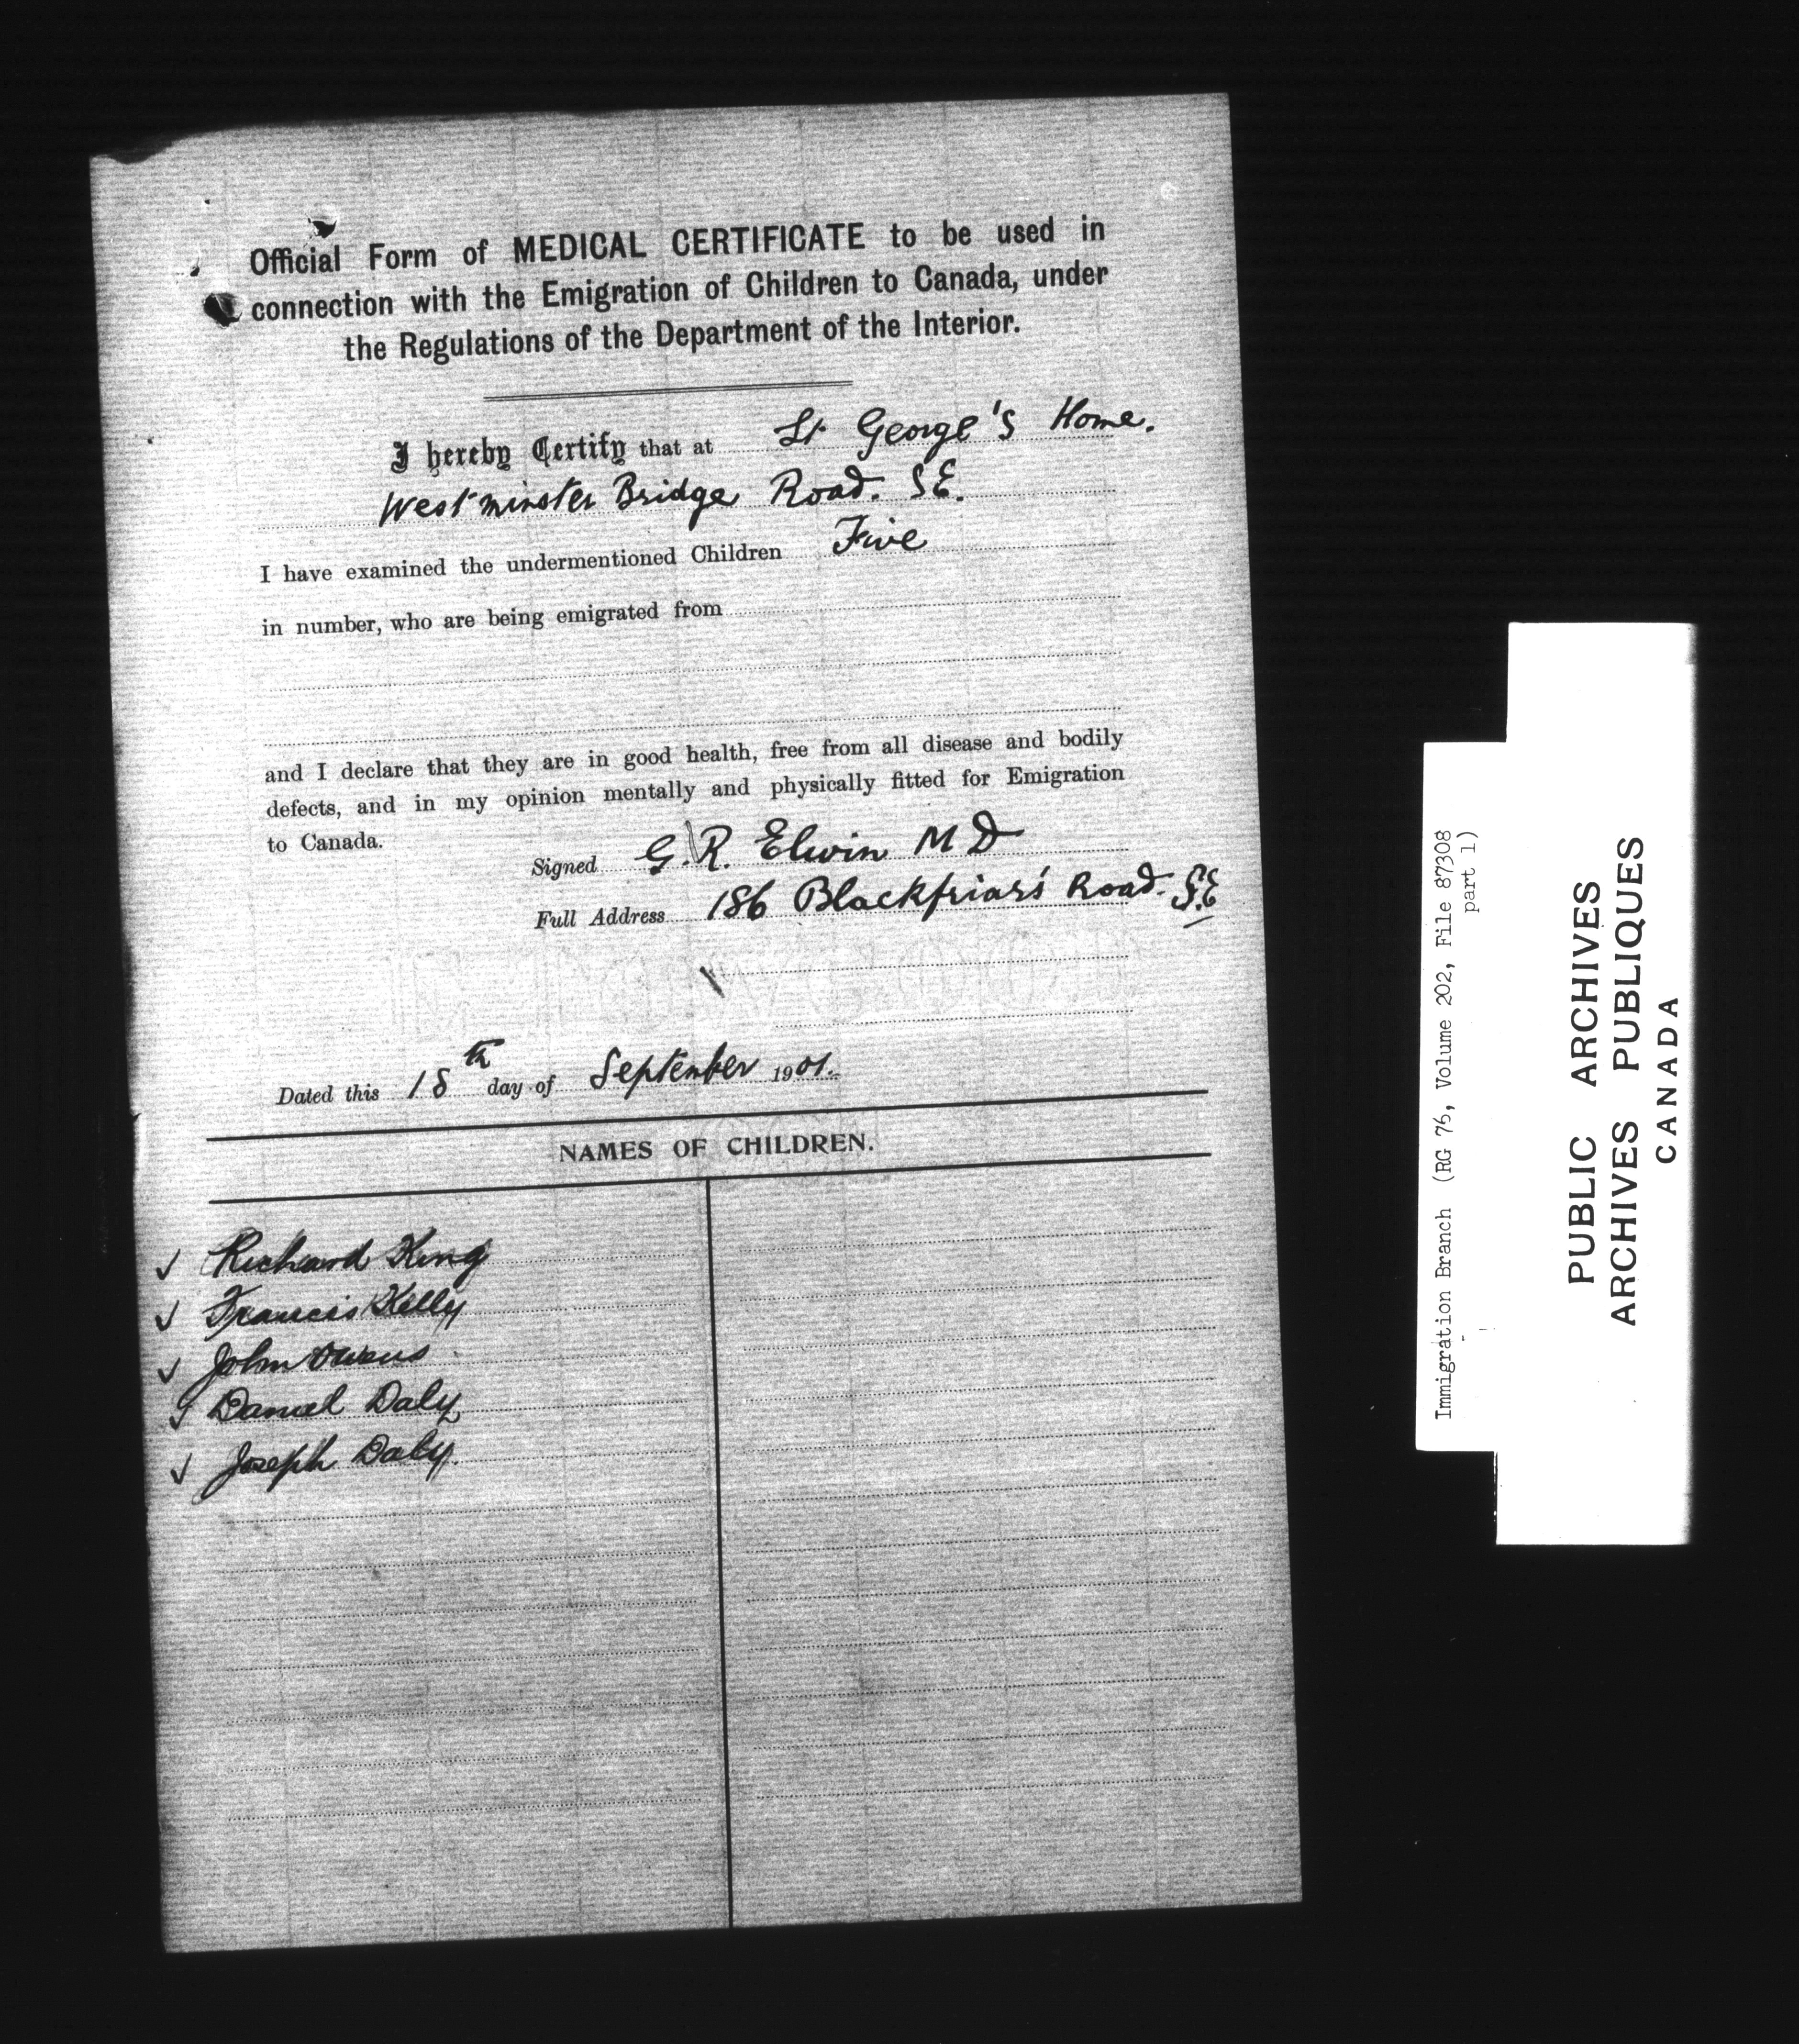 Official Form of MEDICAL CERTIFICATE to be used in
connection with the Emigration of Children to Canada, under
the Regulations of the Department of the Interior.
I hereby Certify that at St George's Home.
Westminster Bridge Road. S.E.
I have examined the undermentioned Children Five
in number, who are being emigrated from
and I declare that they are in good health, free from all disease and bodily
defects, and in my opinion mentally and physically fitted for Emigration
to Canada.
Signed G. R. Elwin M D
Full Address 186 Blackfriars Road. S.E
Dated this 18th day of September 1901.
NAMES OF CHILDREN.
Richard King
Francis Kelly
John Owens
Daniel Daly
Joseph Daly.
Immigration Branch (RG 76, Volume 202, File 87308
part 1)
PUBLIC ARCHIVES
ARCHIVES PUBLIQUES
CANADA